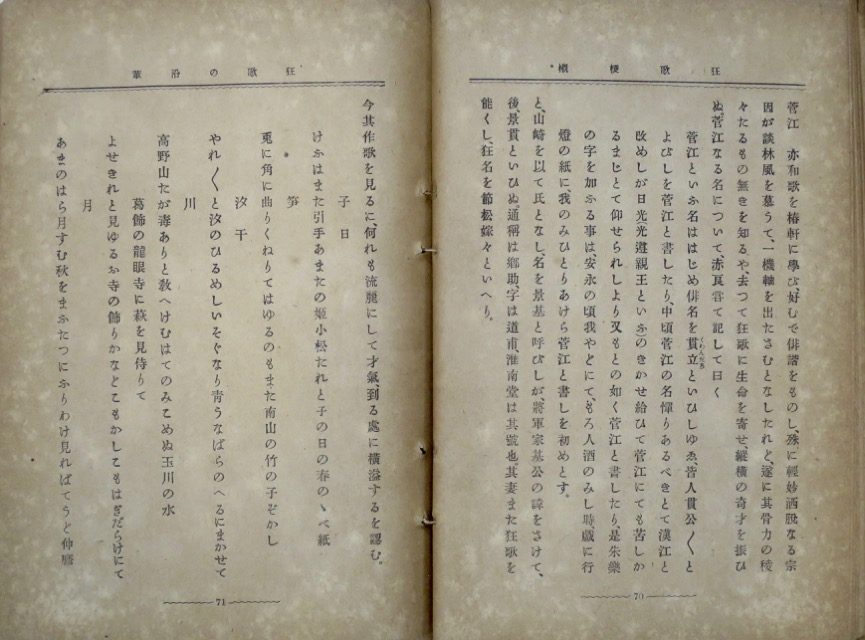 狂歌梗概
菅江　亦和歌を椿軒に學び、好むで俳諧をものし、殊に輕妙洒脫なる宗
因が談林風を慕うて、一機軸を出たさむとなしたれど、遂に其骨力の稜
々たるもの無きを知るや、去つて狂歌に生命を寄せ、縱横の奇才を振ひ
ぬ、菅江なる名について、赤良甞て記して曰く
菅江といふ名ははじめ俳名を貫立といひしゆゑ皆人貫公〱と
くわんだち
よびしを菅江と書したり、中頃菅江の名憚りあるべきとて漢江と
改めしが日光光遵親王といふのきかせ給ひて菅江にても苦しか
るまじとて仰せられしより又もとの如く菅江と書したり、是朱樂
の字を加ふる事は、安永の頃我やどにて、もろ人酒のみし時、戲に行
燈の紙に、我のみひとりあけら菅江と書しを初めとす。
と、山崎を以て氏となし名を景基と呼びしが、將軍家基公の諱をさけて、
後、景貫といひぬ。通稱は鄕助、字は道甫、淮南堂は其號也其妻また狂歌を
能くし、狂名を節松嫁々といへり。
70
狂歌の沿革
今其作歌を見るに、何れも流麗にして才氣、到る處に横溢するを認む。
子日
けふはまた引手あまたの姬小松たれと子の日の春のゝべ紙
笋
兎に角に曲りくねりてはゆるのもまた南山の竹の子ぞかし
汐干
やれ〱と汐のひるめしいそぐなり靑うなばらのへるにまかせて
川
高野山たが毒ありと敎へけむはてのみこめぬ玉川の水
葛飾の龍眼寺に萩を見侍りて
よせきれと見ゆるお寺の飾りかなどこもかしこもはぎだらけにて
月
あまのはら月すむ秋をまふたつにふりわけ見ればてうど仲麿
71